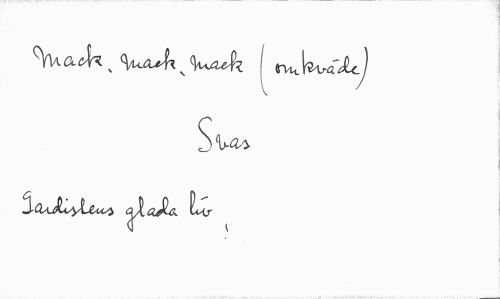 Mack, mack, mack (omkväde)
Svas
Gardistens glada liv